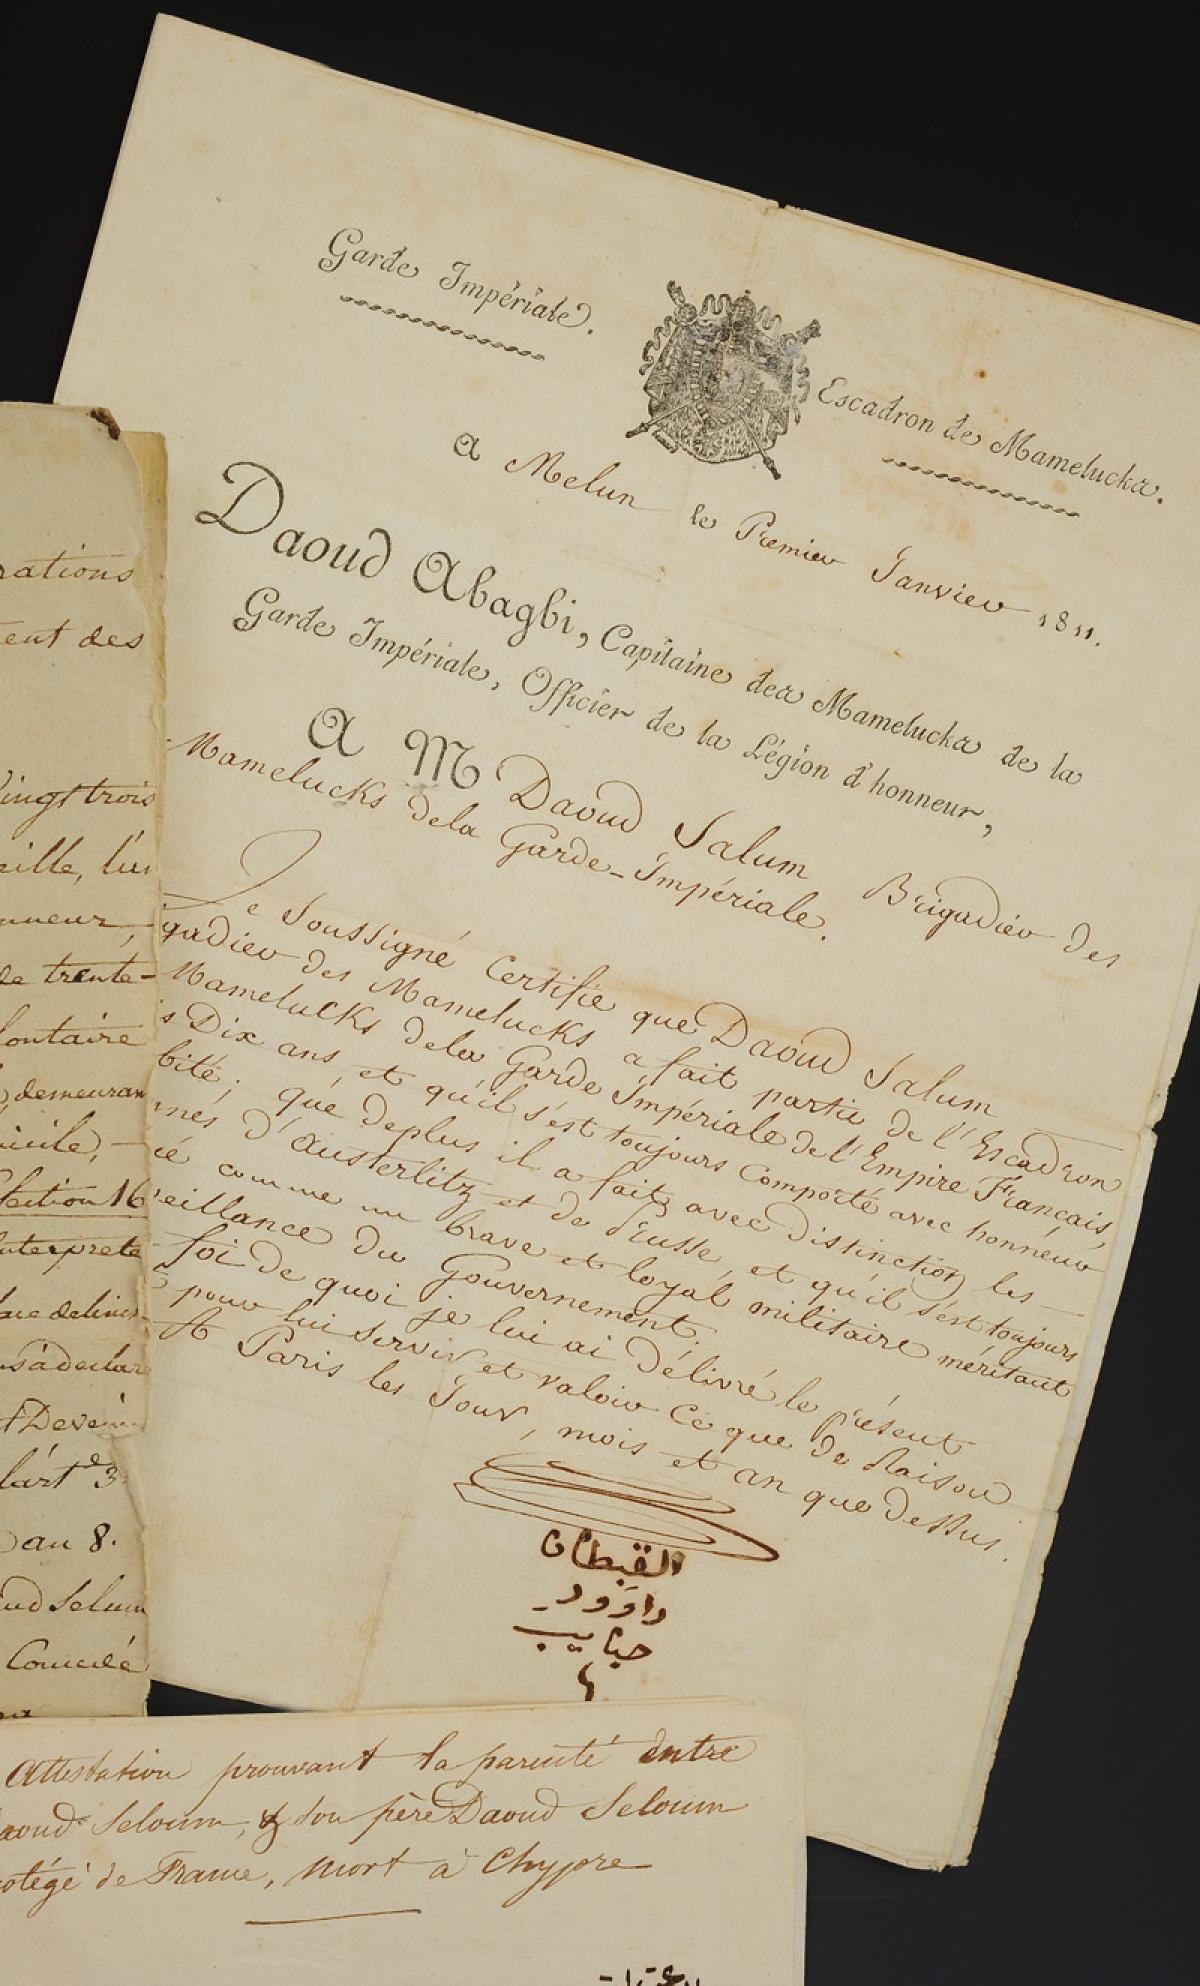 Garde Impériale.
Escadron de Mamelucks.
A Melun le Premier Janvier 1811.
Daoud Abagbi, Capitaine des Mamelucks de la
Garde Impériale, Officier de la Légion d'honneur,
A M Daoud Salum Brigadier des
Mamelucks dela Garde-Impériale.
Je Soussigné Certifie que Daoud Salum
gadier des Mamelucks a fait partie de l'Escadron
Mamelucks dela Garde Impériale de l'Empire Français,
s Dix ans, et qu'il s'est toujours comporté avec honneur
bité; que deplus il a fait avec distinction les
nes d'Austerlitz et de Prusse, et qu'il s'est toujours
é comme un brave et loyal militaire méritant
eillance du Gouvernement;
foi de quoi je lui ai délivré le présent
pour lui servir et valoir ce que de Raison
A Paris les Jour, mois et an que dessus.
القبطان
داوود
حبايب
rations
ent des
ingt trois
eille, l'un
nneur,
de trente-
lontaire
demeuran
icile,
Section 16
nterprete
Devenir
l'art 3
au 8.
ud Selum
Attestation prouvant la parenté entre
aoud Seloum, & son père Daoud Seloum
otégé de France, mort à Chypre